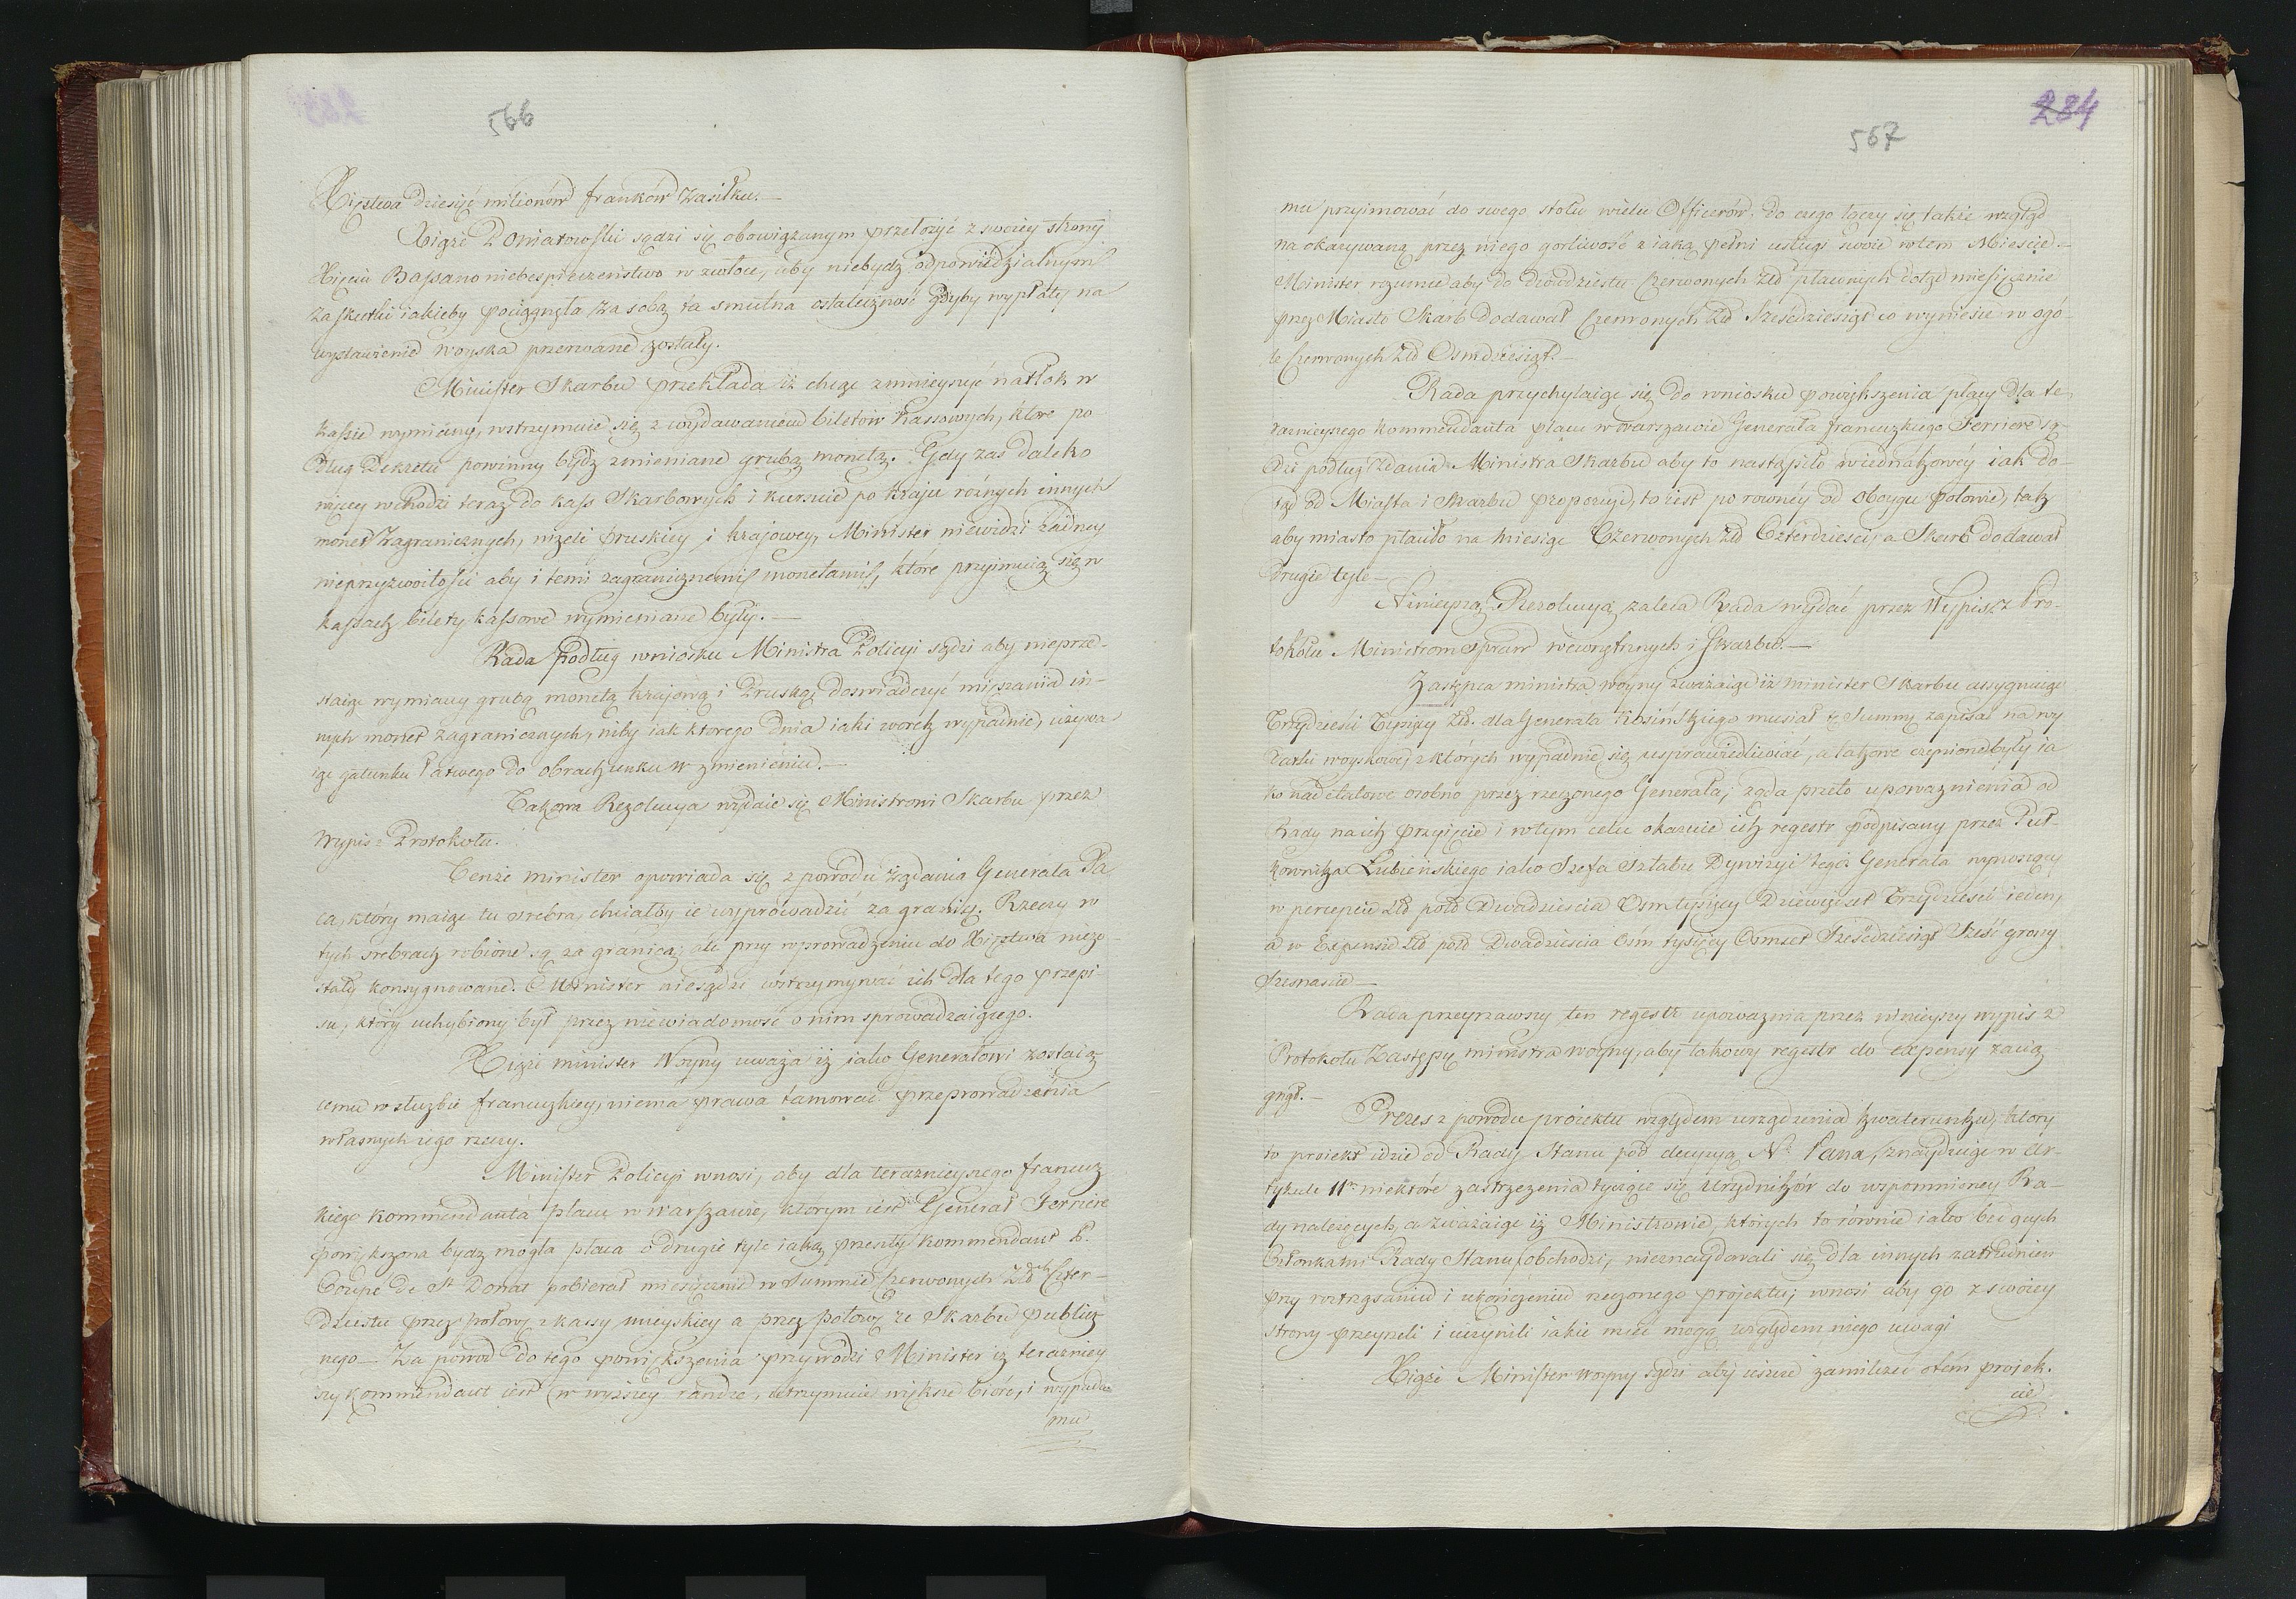 566
Xięztwa dziesięć milionów franków zasiłku.—
Xiąże Poniatowski sądzi się obowiązanym przełożyć z swoiey strony
Xięciu Bassano niebespieczeństwo w zwłoce, aby niebydź odpowiedzialnym
za skutki iakieby pociągnęła za sobą ta smutna ostateczność gdyby wypłaty na
wystawienie woyska przerwane zostały.
Minister Skarbu przekłada iż chcąc zmnieyszyć natłok w
kassie wymiany, wstrzymuie się z wydawaniem biletów kassowych, które po
dług Dekretu powinny bydź zmieniane grubą monetą. Gdy zaś daleko
więcey wchodzi teraz do kass Skarbowych i kursuie po kraju różnych innych
monet zagranicznych, niżeli pruskiey i krajowey, Minister niewidzi żadney
nieprzyzwoitości aby i temi zagranicznemi monetami, które przyimuią się w
kassach bilety kassowe wymieniane były.—
Rada podług wniosku Ministra Policyi sądzi aby nieprze-
staiąc wymiany grubą monetą krajową i Pruską, doświadczyć mięszania in-
nych monet zagranicznych, niby iak ktorego dnia iaki worek wypadnie, używa
iąc gatunku łatwego do obrachunku w zmienieniu.—
Takowa Rezolucya wydaie się Ministrowi Skarbu przez
Wypis z Protokołu.
Tenże minister opowiada się z powodu żądania Generała Pa
ca, który maiąc tu srebra, chciałby ie wyprowadzić za granicę. Rzeczy w
tych srebrach robione są za granicą; ale przy wprowadzeniu do Xięztwa niezo-
stały konsygnowane. Minister niesądzi wstrzymywać ich dla tego przepi-
su, który uchybiony był przez niewiadomość o nim sprowadzaiącego.
Xiąże minister Woyny uważa iż iako Generałowi zostaią-
cemu w służbie francuzkiey, niema prawa tamować przeprowadzenia
własnych iego rzeczy.
Minister Policyi wnosi, aby dla teraznieyszego francuz
kiego kommendanta placu w Warszawie, którym iest Generał Ferriere
powiększona bydź mogła płaca o drugie tyle iaką przeszły kommendant P.
Coupé de St Donat pobierał miesięcznie w Summie Czerwonych Złdch Czter-
dziestu przez połowę z kassy mieyskiey a przez połowę ze Skarbu publicz
nego— Za powód do tego powiększenia przywodzi Minister iż terazniey
szy kommendant iest w wyższey randze, utrzymuie większe bióro, i wypada
mu
284
567
mu przyimować do swego stołu wielu Officerów, do czego łączy się także wzgląd
na okazywaną przez niego gorliwość z iaką pełni usługi swoie w tem Mieście.—
Minister rozumie aby do dwódziestu Czerwonych Złd płaconych dotąd miesięcznie
przez Miasto Skarb dodawał Czerwonych Złd Sześćdziesiąt co wyniesie w ogó-
le Czerwonych Złd Osmdziesiąt.—
Rada przychylaiąc się do wniosku powiększenia płacy dla te-
raznieyszego kommendanta placu w Warszawie Generała francuzkiego Ferriere są-
dzi podług zdania Ministra Skarbu aby to nastąpiło w iednakowey iak do-
tąd od Miasta i Skarbu proporcyi, to iest po rowney od oboyga połowie, tak
aby miasto płaciło na miesiąc Czerwonych Złd Czterdzieści, a Skarb dodawał
drugie tyle—
Ninieyszą Rezolucyą zaleca Rada wydać przez Wypis z Pro-
tokołu Ministrom Spraw wewnętrznych i Skarbu.—
Zastępca ministra woyny zważaiąc iż minister Skarbu assygnuiąc
Trzydzieści Tysięcy Złd. dla Generała Kosińskiego musiał tę Summę zapisać na wy
datki woyskowe, z których wypadnie się usprawiedliwić, a takowe czynione były ia
ko nadetatowe osobno przez rzeczonego Generała; żąda przeto upoważnienia od
Rady na ich przyięcie i w tym celu okazuie ich regestr podpisany przez Puł-
kownika Łubieńskiego iako Szefa Sztabu Dywizyi tegoż Generała wynoszący
w percepcie Złd pold Dwadzieścia Osm tysięcy Dziewięćset Trzydzieści ieden,
a w Expensie Złd pold Dwadzieścia Ośm tysięcy Osmset Sześćdziesiąt Sześć groszy
szesnaście—
Rada przeyrzawszy ten regestr upoważnia przez ninieyszy wypis z
Protokołu Zastępcę ministra woyny, aby takowy regestr do expensy zacią
gnął.—
Prezes z powodu proiektu względem urządzenia kwaterunku, który
to proiekt idzie od Rady Stanu pod decyzyą N. Pana, znayduiąc w Ar-
tykule 11m niektóre zastrzeżenia tyczące się Urzędników do wspomnioney Ra-
dy należących, a zważaiąc iż Ministrowie, których to równie iako będących
Członkami Rady Stanu obchodzi, nieznaydowali się dla innych zatrudnień
przy roztrząsaniu i ukończeniu rzeczonego projektu; wnosi aby go z swoiey
strony przeyrzeli i uczynili iakie mieć mogą względem niego uwagi
Xiąże Minister woyny sądzi aby ieszcze zamilczeć o tém projek-
cie